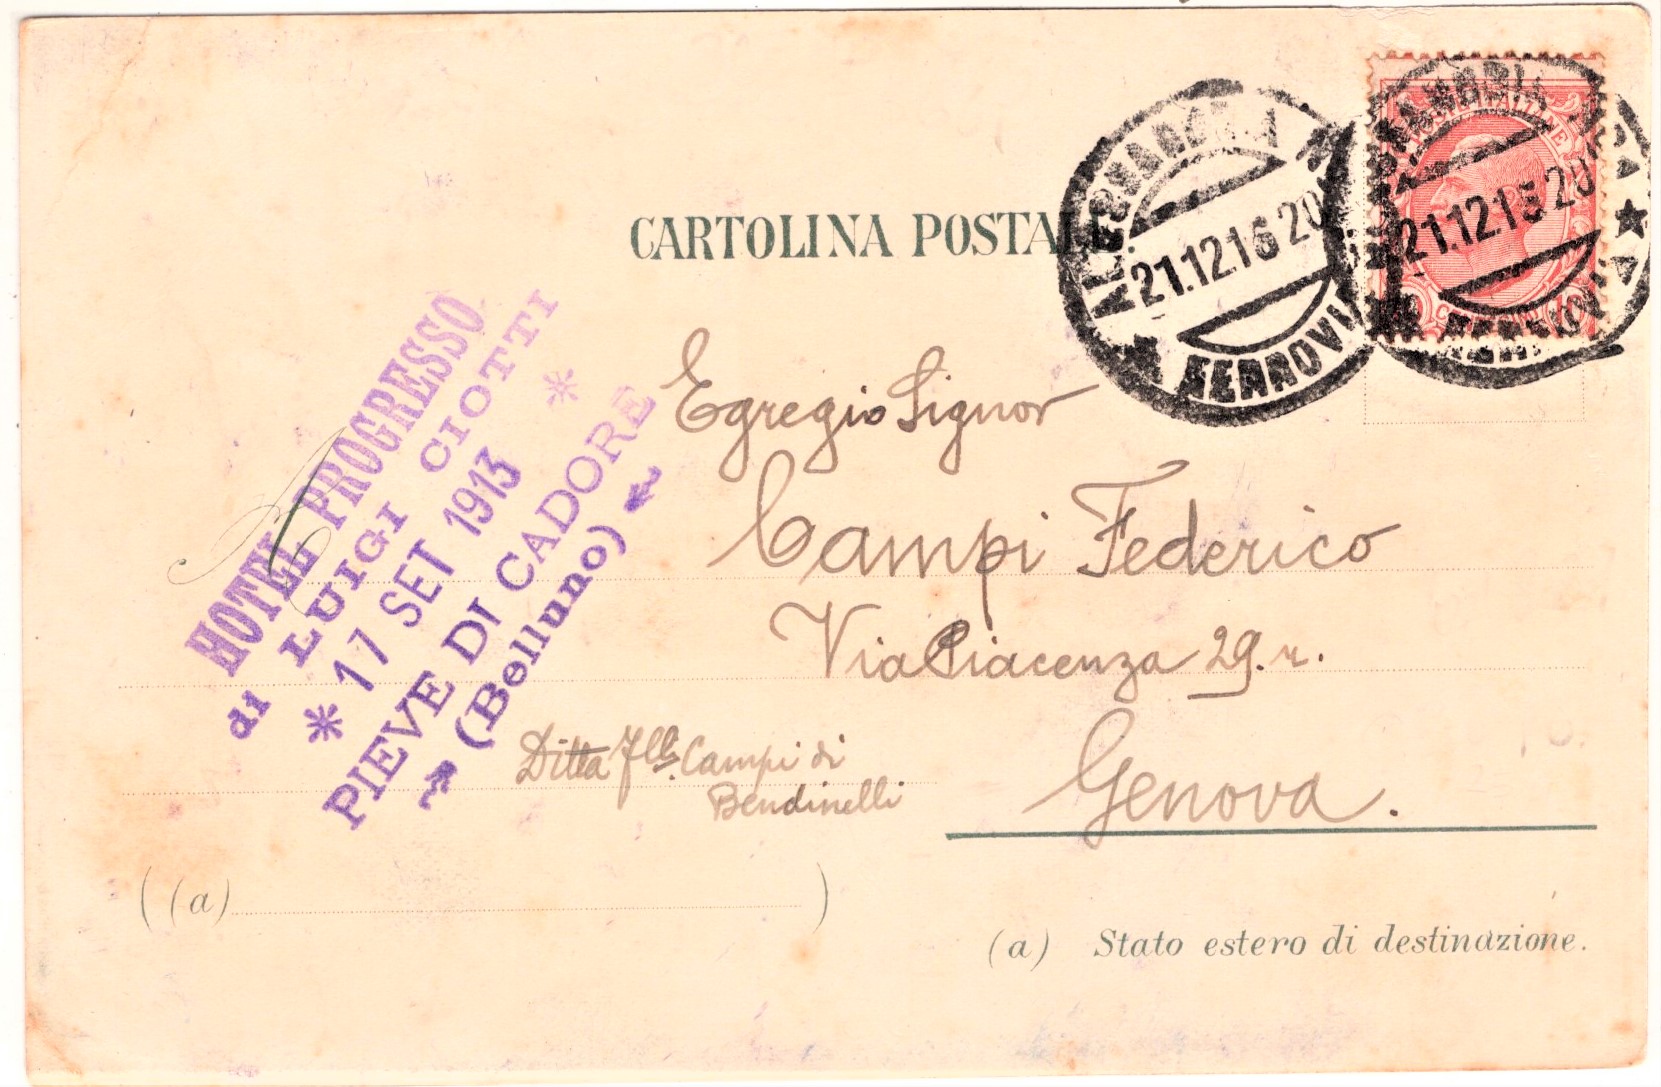 CARTOLINA POSTALE
21.12.15 20
21.12.15 20
FERROVIA
HOTEL PROGRESSO
di LUIGI CIOTTI
* 17 SET 1913 *
PIEVE DI CADORE
(Belluno)
Egregio Signor
Campi Federico
Via Piacenza 29. r.
Genova.
Ditta Flli. Campi di
Bendinelli
A
((a) )
(a) Stato estero di destinazione.